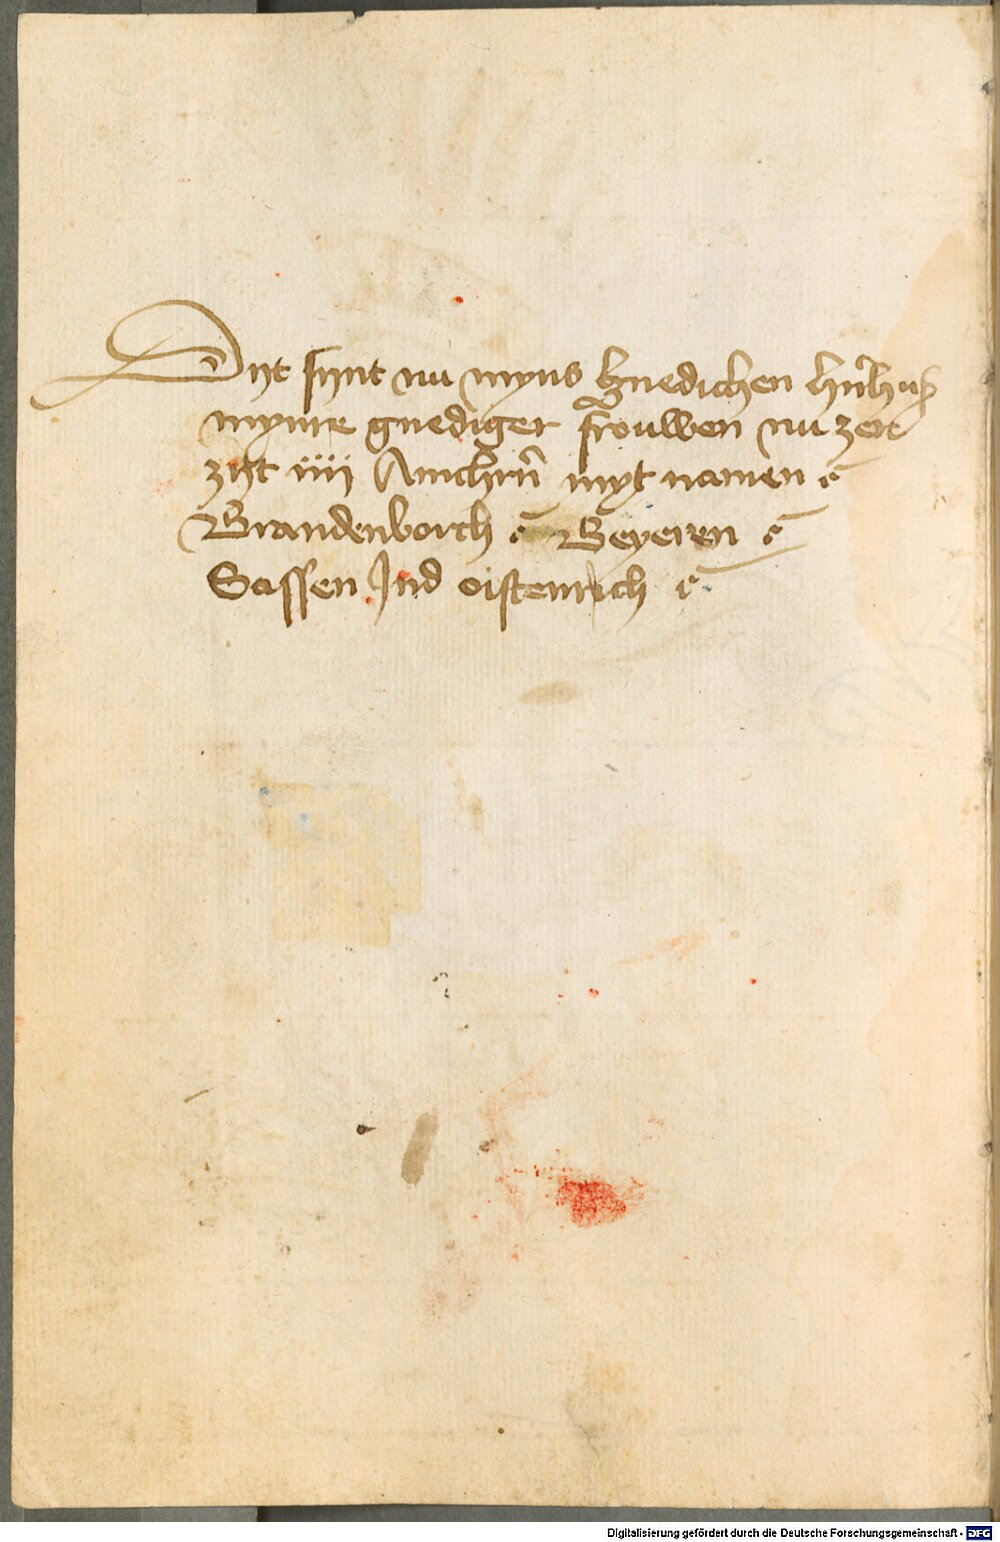 Dijt sijnt nu myns gnedichen
mynre gnediger frouwen nu zer
zijt iiij myt namen
Brandenborch Beyeren
Sassen Ind oistenrich
Digitalisierung gefördert durch die Deutsche Forschungsgemeinschaft - DFG